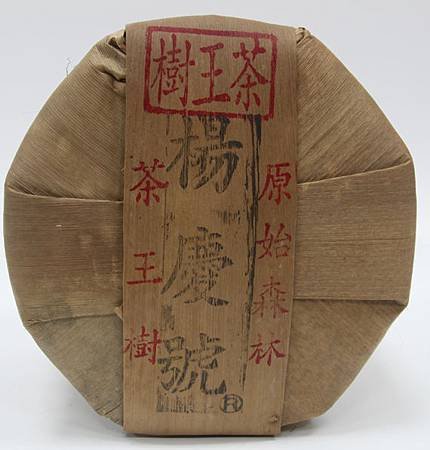 茶王樹
原始森林
楊慶號®
茶王樹